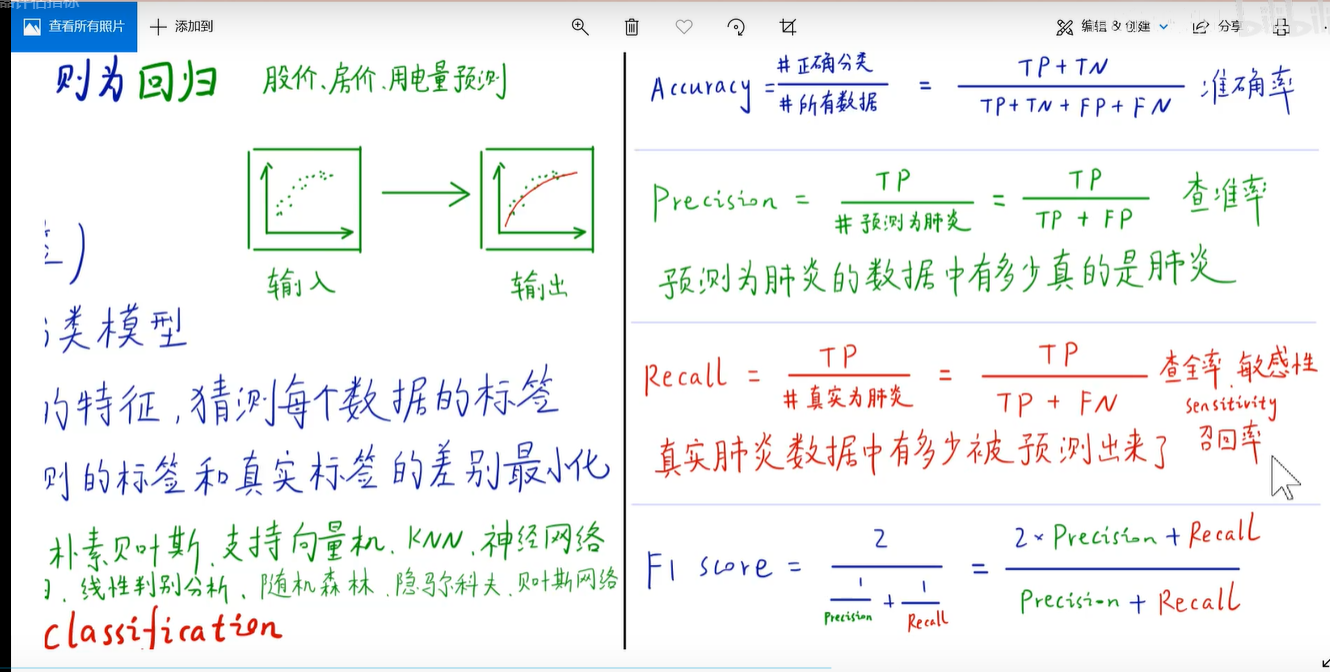 器评估指标
查看所有照片 添加到 编辑 & 创建 分享
bilibili
则为回归 股价、房价、用电量预测
输入 输出
类模型
的特征,猜测每个数据的标签
则的标签和真实标签的差别最小化
朴素贝叶斯、支持向量机、KNN、神经网络
、线性判别分析、随机森林、隐马尔科夫、贝叶斯网络
classification
Accuracy = #正确分类 / #所有数据 = TP+TN / TP+TN+FP+FN 准确率
Precision = TP / #预测为肺炎 = TP / TP + FP 查准率
预测为肺炎的数据中有多少真的是肺炎
Recall = TP / #真实为肺炎 = TP / TP + FN 查全率、敏感性
sensitivity
召回率
真实肺炎数据中有多少被预测出来了
F1 score = 2 / 1 / Precision + 1 / Recall = 2 × Precision + Recall / Precision + Recall